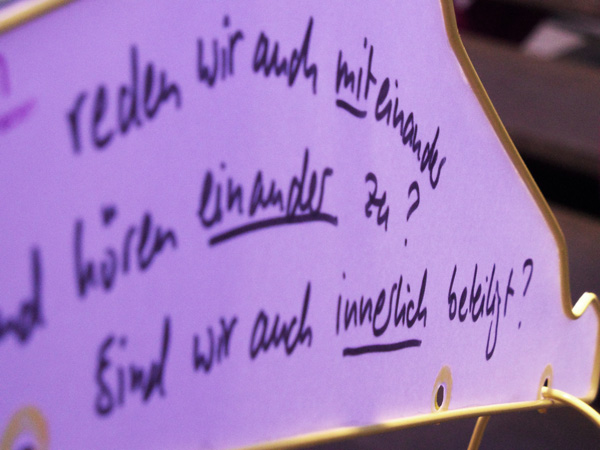 reden wir auch miteinander
und hören einander zu?
Sind wir auch innerlich beteiligt?